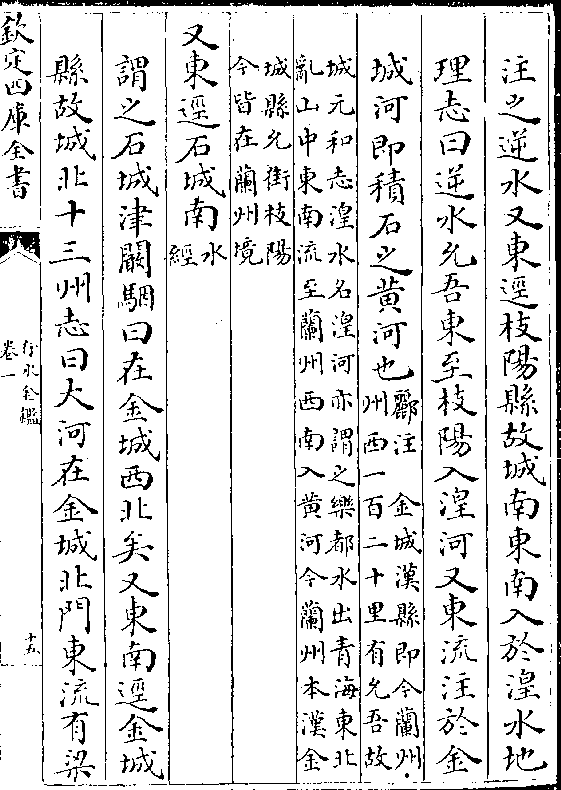 注之逆水又東逕枝陽縣故城南東南入於湟水地
理志曰逆水允吾東至枝陽入湟河又東流注於金
城河即積石之黃河也酈注　金城漢縣即今蘭州
州西一百二十里有允吾故
城元和志湟水名湟河亦謂之樂都水出青海東北
亂山中東南流至蘭州西南入黃河今蘭州本漢金
城縣允街枝陽
今皆在蘭州境
又東逕石城南水經
謂之石城津闞駰曰在金城西北矣又東南逕金城
縣故城北十三州志曰大河在金城北門東流有梁
欽定四庫全書
行水金鑑
卷一
十五